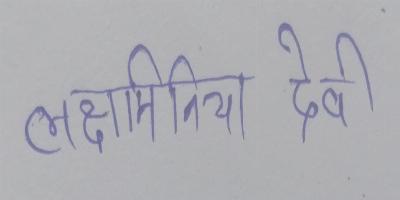 लक्षामिनिया देवी